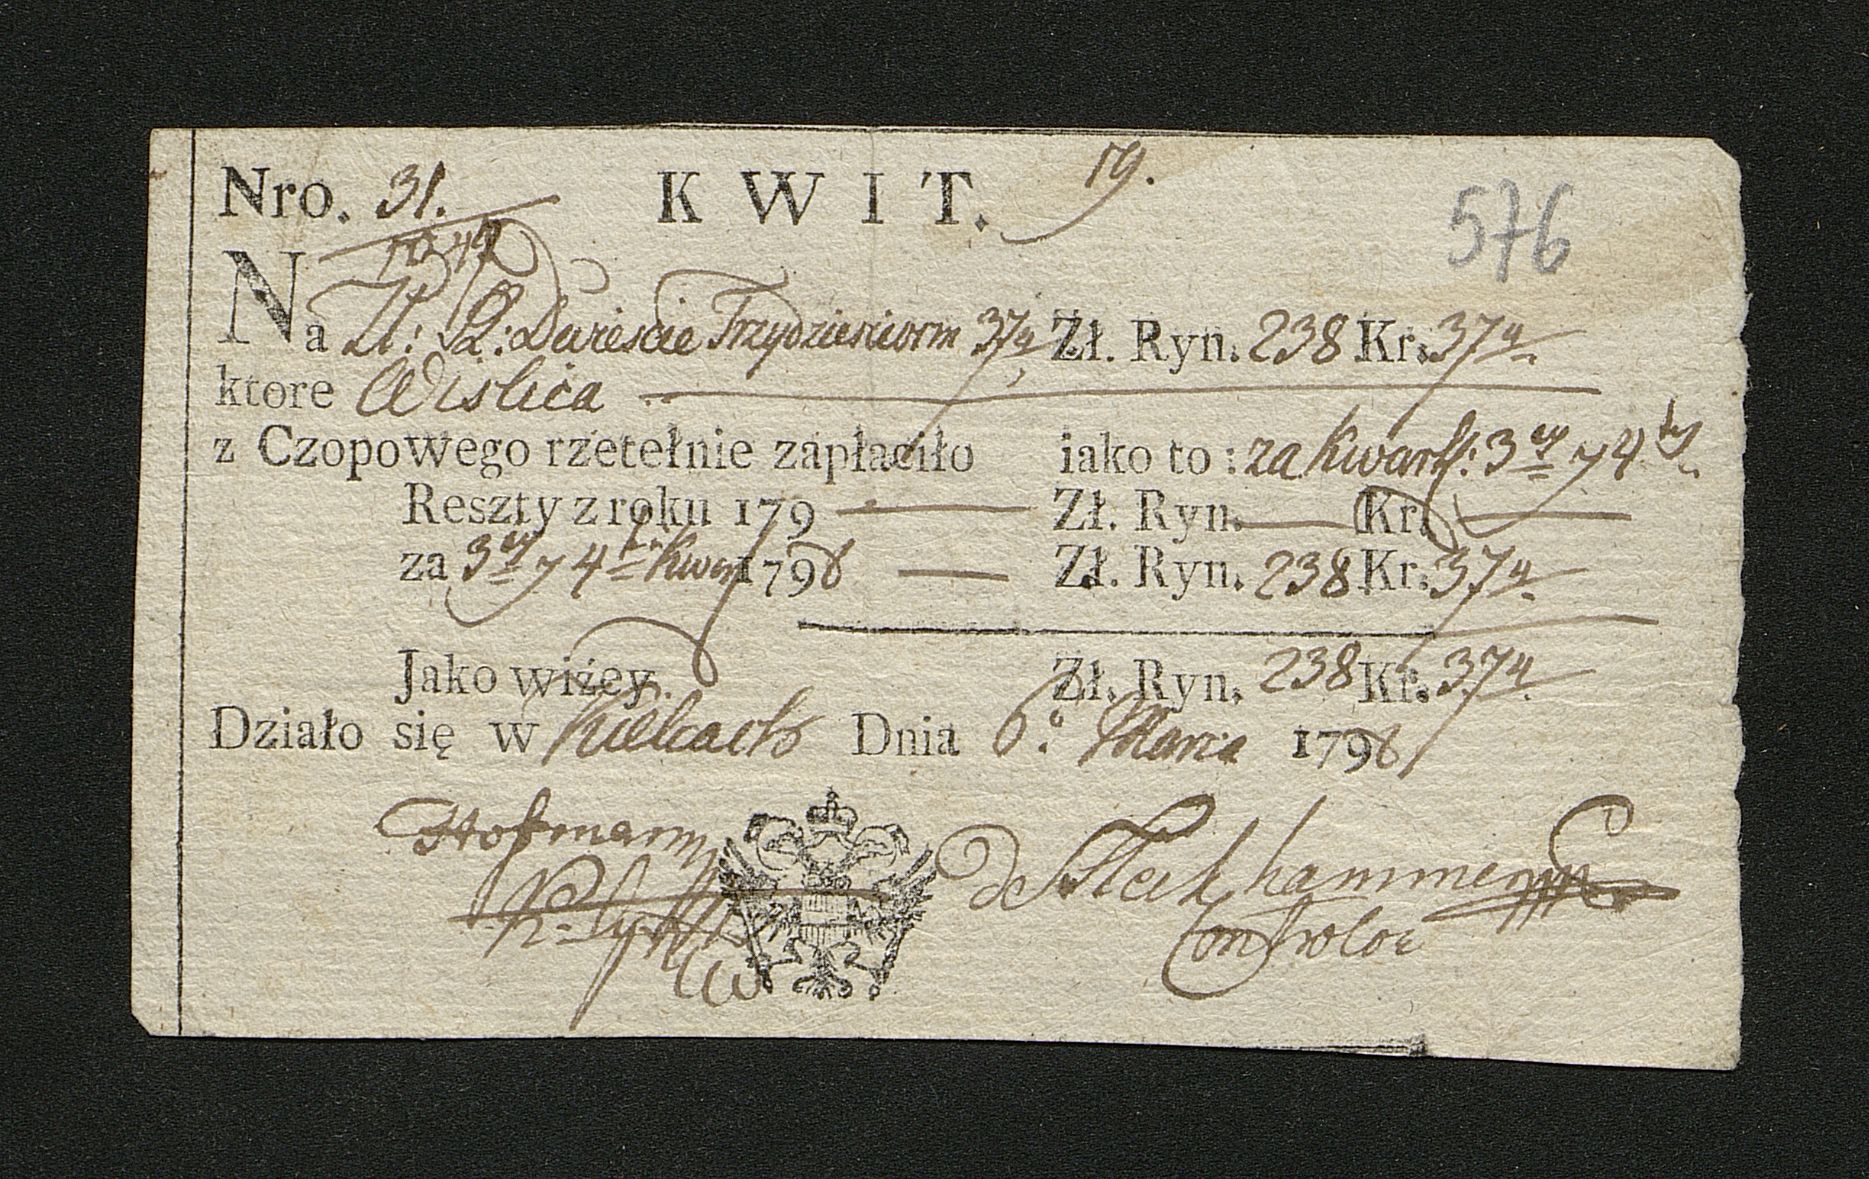 Nro. 31. K W I T. 19.
576
Na Zł: R: Dwiescie Trzydzieściośm 37 4/ Zł. Ryn. 238 Kr. 37 4/
ktore Wislica
z Czopowego rzetełnie zapłaciło iako to: za Kwart: 3cy y 4ty
Reszty z roku 179 Zł. Ryn. Kr.
za 3cy y 4ty Kwar 1796 Zł. Ryn. 238 Kr. 37 4/
Jako wiżey. Zł. Ryn. 238 Kr. 37 4/
Działo się w Kielcach Dnia 6o. Marca 1796
Hofmann
Controlor